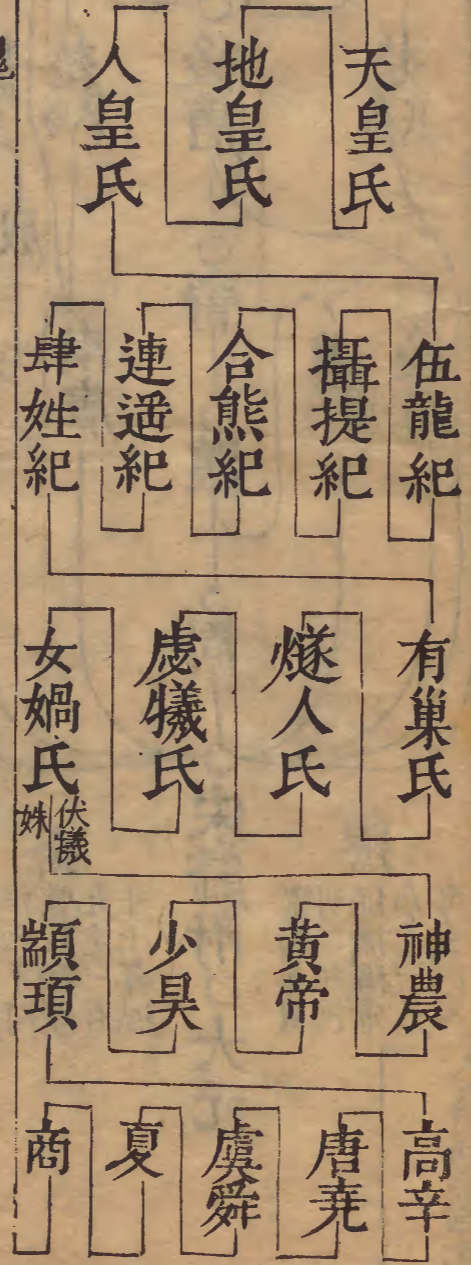 天皇氏
地皇氏
人皇氏
伍龍紀
攝提紀
合熊紀
連逿紀
肆姓紀
有巢氏
燧人氏
虙犧氏
女媧氏
伏犧
妹
神農
黃帝
少昊
顓頊
高辛
唐堯
虞舜
夏
商